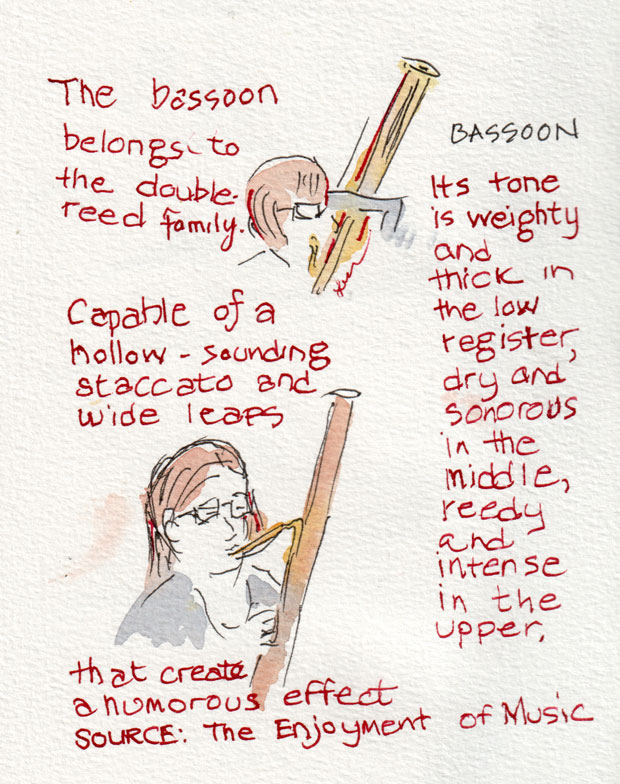 BASSOON
The bassoon
belongs to
the double-
reed family.
Capable of a
hollow - sounding
staccato and
wide leaps
that create
a humorous effect
Its tone
is weighty
and
thick in
the low
register,
dry and
sonorous
in the
middle,
reedy
and
intense
in the
upper.
SOURCE: The Enjoyment of Music